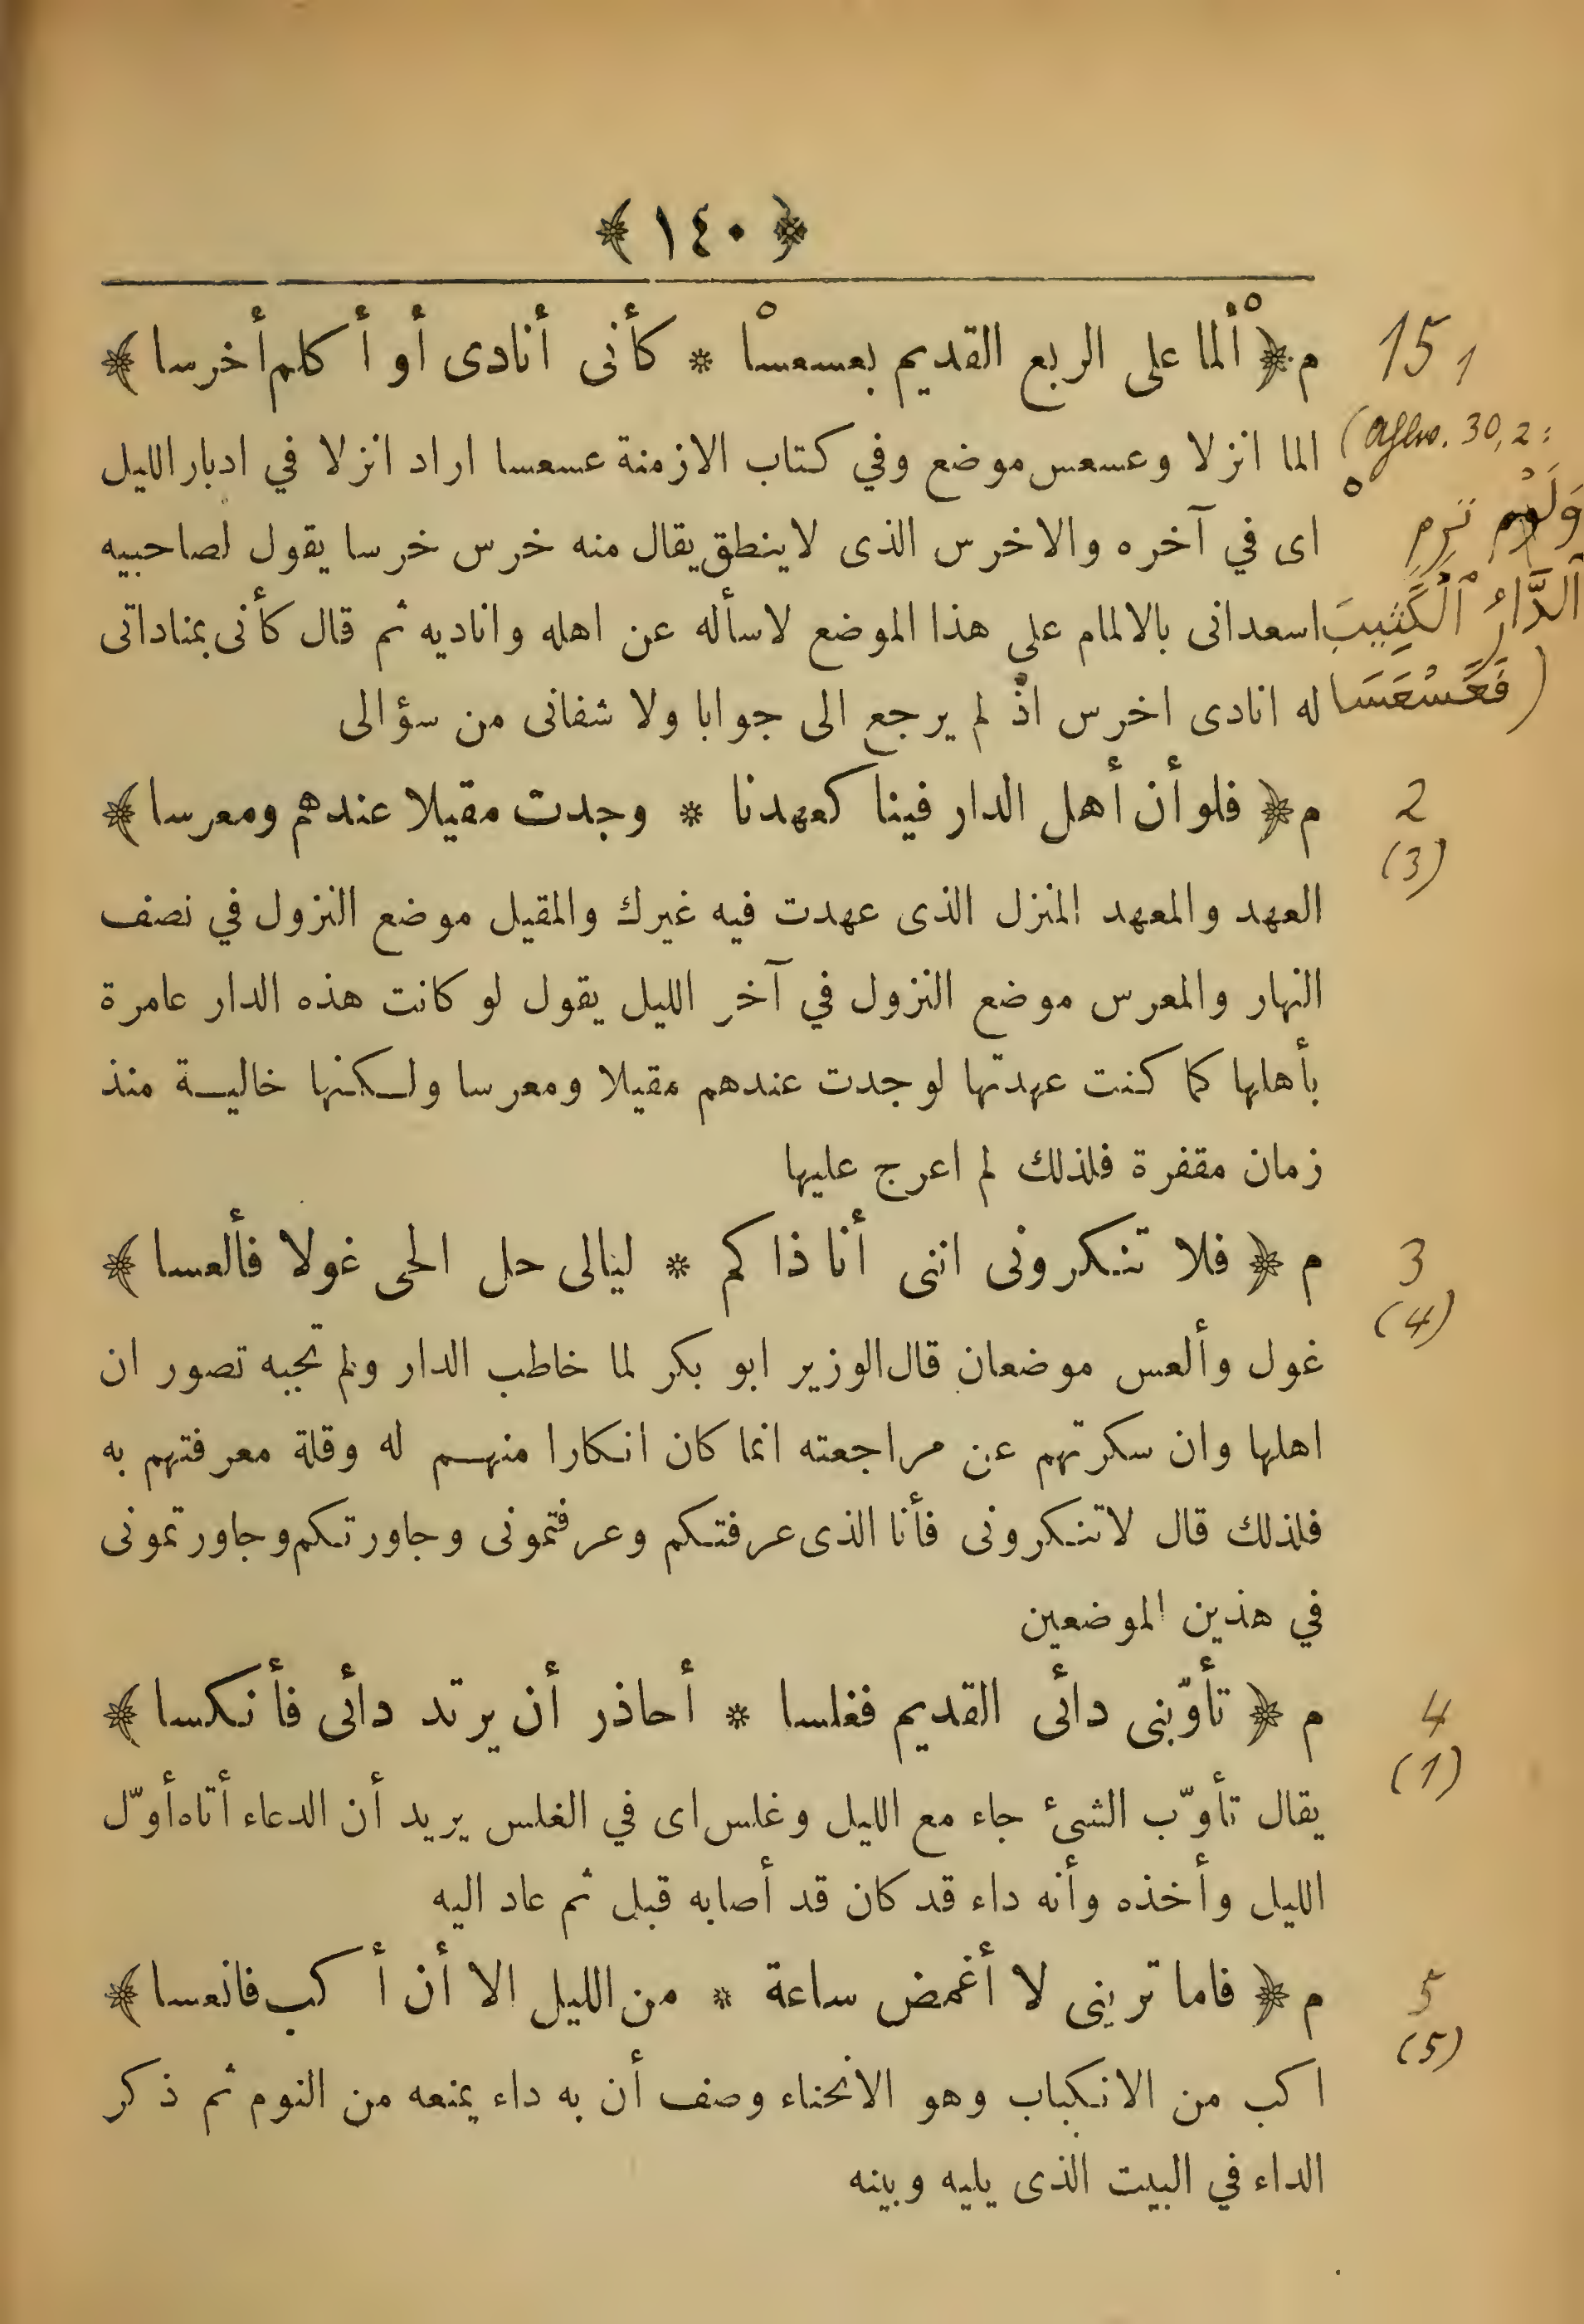 ﴿ ١٤٠ ﴾
م ﴿ ألما على الربع القديم بعسعسا * كأنى أنادى أو أكلم أخرسا ﴾
15, 1
الما انزلا وعسعس موضع وفي كتاب الازمنة عسعسا اراد انزلا في ادبار الليل
(Ahlw. 30, 2:
اى في آخره والاخرس الذى لاينطق يقال منه خرس خرسا يقول لصاحبيه
تَرِمِ
اسعدانى بالالمام على هذا الموضع لاسأله عن اهله واناديه ثم قال كأنى بمناداتى
ٱلدَّارُ ٱلْكَثِيبَ
له انادى اخرس اذ لم يرجع الى جوابا ولا شفانى من سؤالى
فَعَسْعَسَا)
م ﴿ فلو أن أهل الدار فينا كعهدنا * وجدت مقيلا عندهم ومعرسا ﴾
2
(3)
العهد والمعهد المنزل الذى عهدت فيه غيرك والمقيل موضع النزول في نصف
النهار والمعرس موضع النزول في آخر الليل يقول لو كانت هذه الدار عامرة
بأهلها كما كنت عهدتها لوجدت عندهم مقيلا ومعرسا ولكنها خالية منذ
زمان مقفرة فلذلك لم اعرج عليها
م ﴿ فلا تنكرونى اننى أنا ذاكم * ليالى حل الحى غولا فألعسا ﴾
3
(4)
غول وألعس موضعان قال الوزير ابو بكر لما خاطب الدار ولم تجبه تصور ان
اهلها وان سكرتهم عن مراجعته انما كان انكارا منهم له وقلة معرفتهم به
فلذلك قال لاتنكرونى فأنا الذى عرفتكم وعرفتمونى وجاورتكم وجاورتمونى
في هذين الموضعين
م ﴿ تأوّبنى دائى القديم فغلسا * أحاذر أن يرتد دائى فأنكسا ﴾
4
(1)
يقال تأوّب الشئ جاء مع الليل وغلس اى في الغلس يريد أن الدعاء أتاه أوّل
الليل وأخذه وأنه داء قد كان قد أصابه قبل ثم عاد اليه
م ﴿ فاما ترينى لا أغمض ساعة * من الليل الا أن أكب فانعسا ﴾
5
(5)
اكب من الانكباب وهو الانحناء وصف أن به داء يمنعه من النوم ثم ذكر
الداء في البيت الذى يليه وبينه